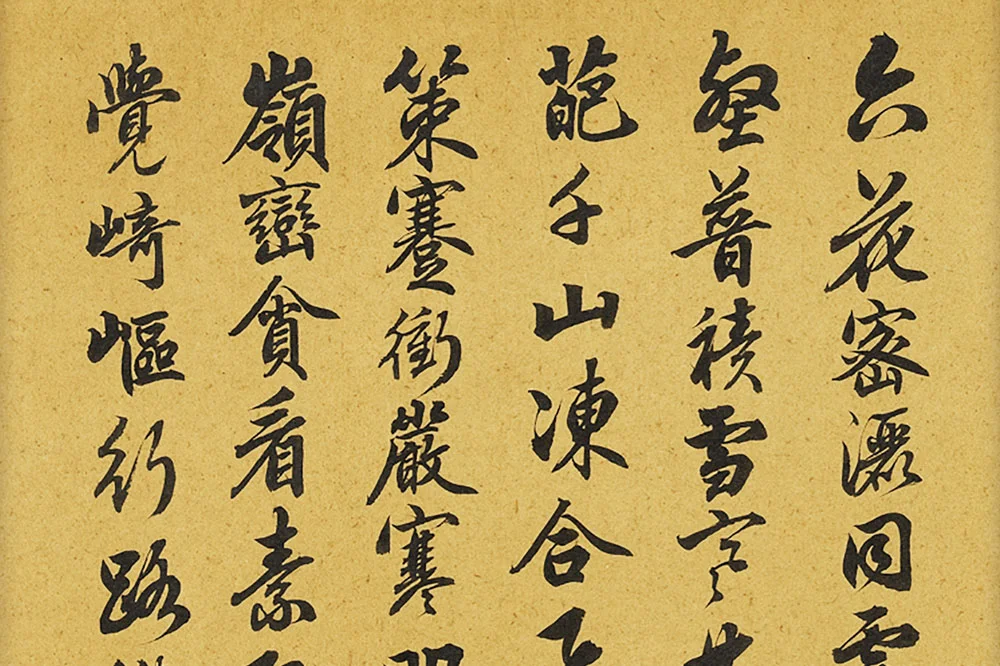 六花密灑同
壑普積雪
葩千山凍合
策蹇衝嚴寒
嶺巒貪看素
覺崎嶇行路